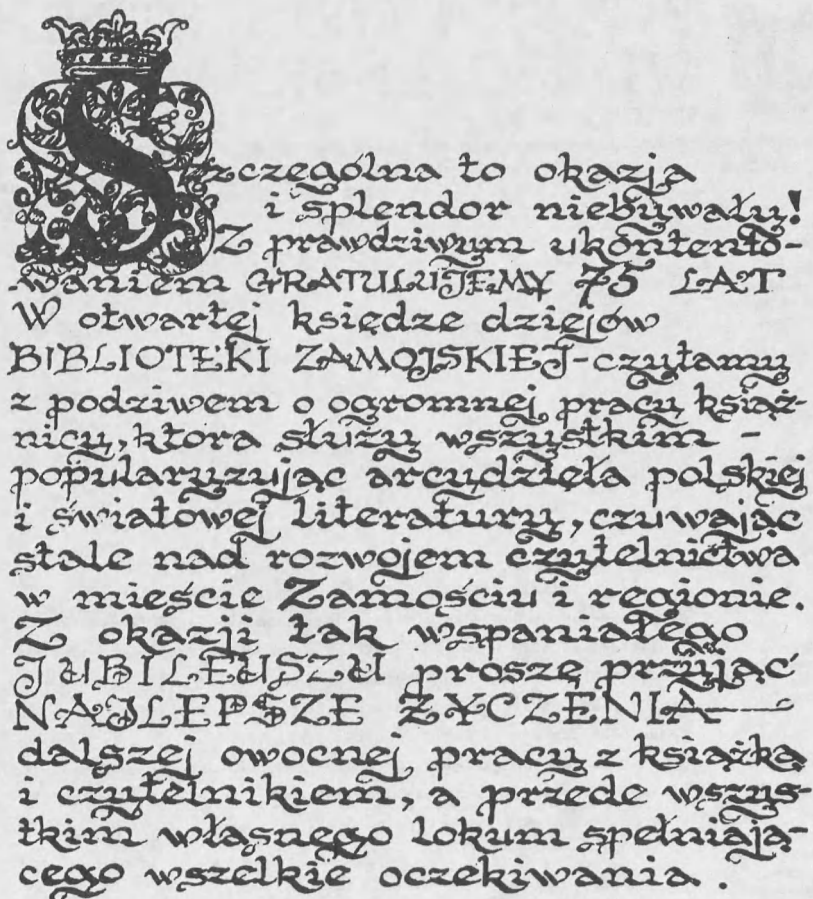 Szczególna to okazja
i splendor niebywały!
Z prawdziwym ukontento-
waniem GRATULUJEMY 75 LAT
W otwartej księdze dziejów
BIBLIOTEKI ZAMOJSKIEJ-czytamy
z podziwem o ogromnej pracy książ-
nicy, która służy wszystkim -
popularyzując arcydzieła polskiej
i światowej literatury, czuwając
stale nad rozwojem czytelnictwa
w mieście Zamościu i regionie.
Z okazji tak wspaniałego
JUBILEUSZU proszę przyjąć
NAJLEPSZE ŻYCZENIA
dalszej owocnej pracy z książką
i czytelnikiem, a przede wszys-
tkim własnego lokum spełniają-
cego wszelkie oczekiwania.